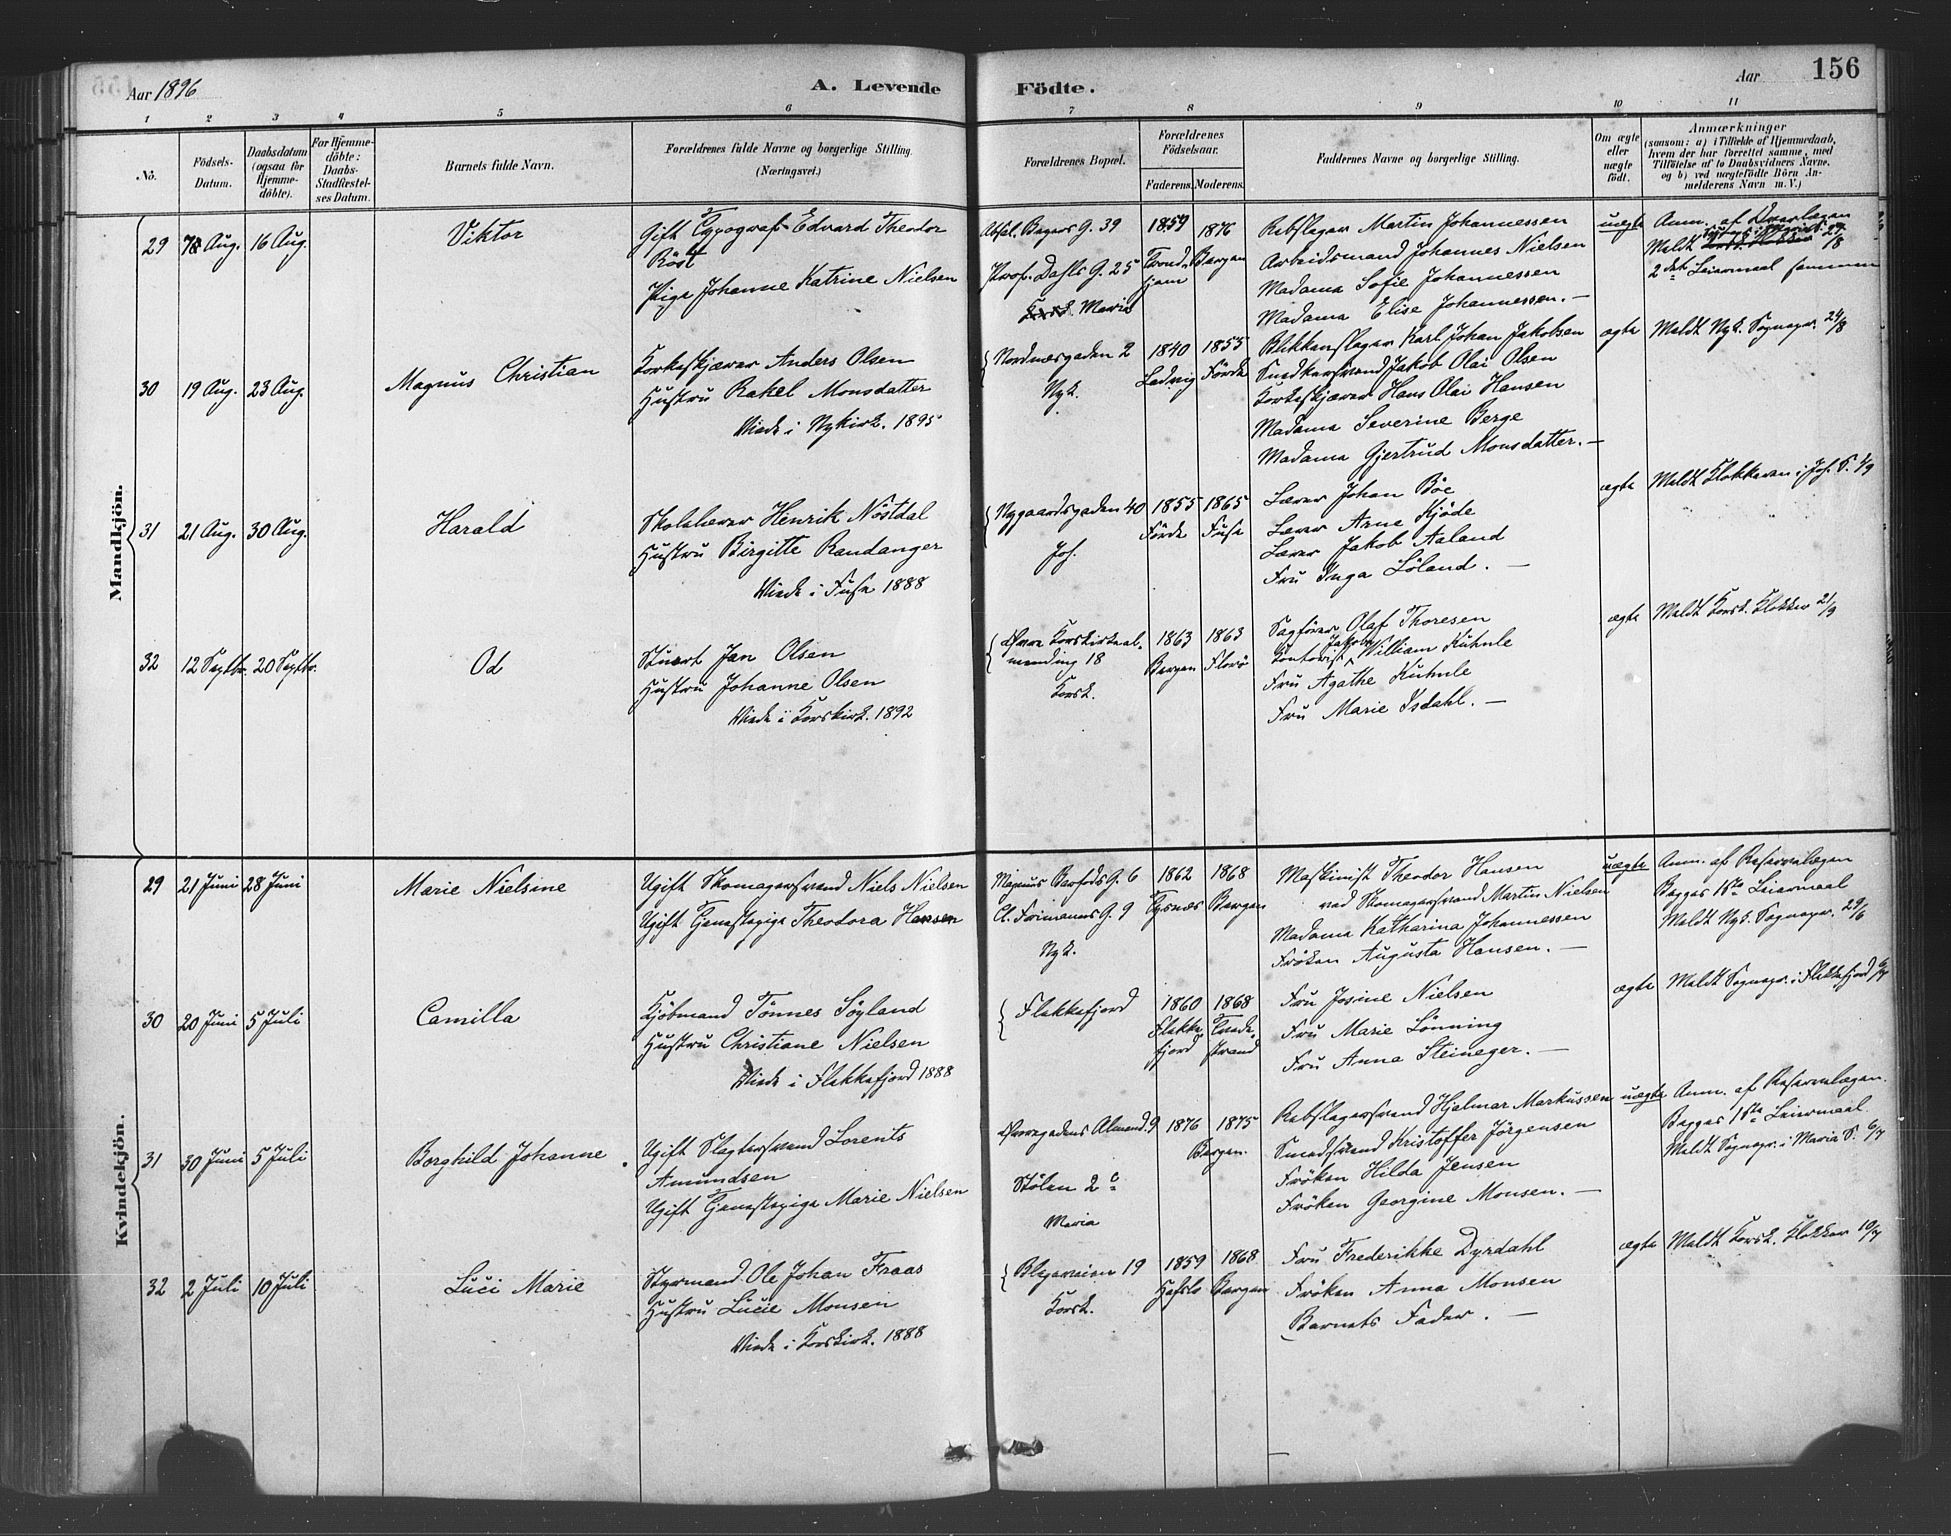 Aar 1896
A. Levende Födte.
Aar
156
1 2 3 4 5 6 7 8 9 10 11
No.
Födsels-Datum.
Daabsdatum (ogsaa for Hjemme-döbte).
For Hjemme-döbte: Daabs-Stadfæstel-ses Datum.
Barnets fulde Navn.
Forældrenes fulde Navne og borgerlige Stilling. (Næringsvei.)
Forældrenes Bopæl.
Forældrenes Födselsaar.
Faderens. Moderens.
Faddernes Navne og borgerlige Stilling.
Om ægte eller uægte födt.
Anmærkninger
(saasom: a) i Tilfælde af Hjemmedaab,
hvem der har forrettet samme, med
Tilföielse af to Daabsvidners Navne.
og b) ved uægtefödte Börn An-
melderens Navn m. V.)
Mandkjön.
29 7 Aug. 16 Aug.
Viktor
Gift Typograf Edvard Theodor
Röst
Pige Johanne Katrine Nielsen
Absal. Beyers G. 39
Prof. Dahls G. 25
Maria
1859 Trond-
hjem
1876 Bergen
Rebslager Martin Johannessen
Arbeidsmand Johannes Nielsen
Madama Sofie Johannessen
Madama Elise Johannessen. —
uægte
Anm. af Overlægen
Meldt 29/8
2det Leiermaal sammen
30 19 Aug. 23 Aug.
Magnus Christian
Korkeskjærer Anders Olsen
Hustru Rakel Monsdatter
Viede i Nykirk. 1895
Nordnæsgaden 2
Nyk.
1840 Ladvig
1855 Förde
Blikkenslager Karl Johan Jakobsen
Snedkersvend Jakob Olai Olsen
Korkeskjærer Hans Olai Hansen
Madama Severine Berge
Madama Gjertrud Monsdatter. —
ægte
Meldt Nyk. Sognepr. 24/8
31 21 Aug. 30 Aug.
Harald
Skolelærer Henrik Nöstdal
Hustru Birgitte Randanger
Viede i Fuse 1888
Nygaardsgaden 40
Joh.
1855 Förde
1865 Fuse
Lærer Johan Böe
Lærer Arne Kjöde
Lærer Jakob Aaland
Fru Inga Löland. —
ægte
Meldt Klokkeren i Joh. S. 1/9
32 12 Septbr. 20 Septbr.
Od
Stuert Jan Olsen
Hustru Johanne Olsen
Viede i Korskirk. 1892
Övre Korskirkeal-
mending 18
Korsk.
1863 Bergen
1863 Florö
Sagförer Olaf Thoresen
Kontorist Jakob William Kuhnle
Fru Agathe Kuhnle
Fru Marie Isdahl. —
ægte
Meldt Korsk. Klokker 21/9
Kvindekjön.
29 21 Juni 28 Juni
Marie Nielsine
Ugift Skomagersvend Niels Nielsen
Ugift Tjenestepige Theodora Hansen
Magnus Barfods G. 6
Cl. Frimanns G. 9
Nyk.
1862 Tysnæs
1868 Bergen
Maskinist Theodor Hansen
ved Skomagersvend Martin Nielsen
Madama Katharina Johannessen
Fröken Augusta Hansen. —
uægte
Anm. af Reservelægen
Begges 1ste Leiermaal
Meldt Nyk. Sognepr. 29/6
30 20 Juni 5 Juli
Camilla
Kjöbmand Tönnes Söyland
Hustru Christiane Nielsen
Viede i Flekkefjord 1888
Flekkefjord
1860 Flekke-
fjord
1868 Tvede-
strand
Fru Josine Nielsen
Fru Marie Lönning
Fru Anna Steineger. —
ægte
Meldt Sognepr. i Flekkefjord 6/7
31 30 Juni 5 Juli
Borghild Johanne
Ugift Slagtersvend Lorents
Amundsen
Ugift Tjenestepige Marie Nielsen
Övregadens Almend. 9
Stölen 2c
Maria
1876 1875
Bergen.
Rebslagersvend Hjalmar Markussen
Smedsvend Kristoffer Jörgensen
Fröken Hilda Jensen
Fröken Georgine Monsen. —
uægte
Anm. af Reservelægen.
Begges 1ste Leiermaal.
Meldt Sognepr. i Maria S. 6/7
32 2 Juli 10 Juli
Luci Marie
Styrmand Ole Johan Fraas
Hustru Lucie Monsen
Viede i Korskirk. 1888
Blegeveien 19
Korsk.
1859 Hafslo
1868 Bergen
Fru Frederikke Dyrdahl
Fröken Anna Monsen
Barnets Fader. —
ægte
Meldt Korsk. Klokker 10/7